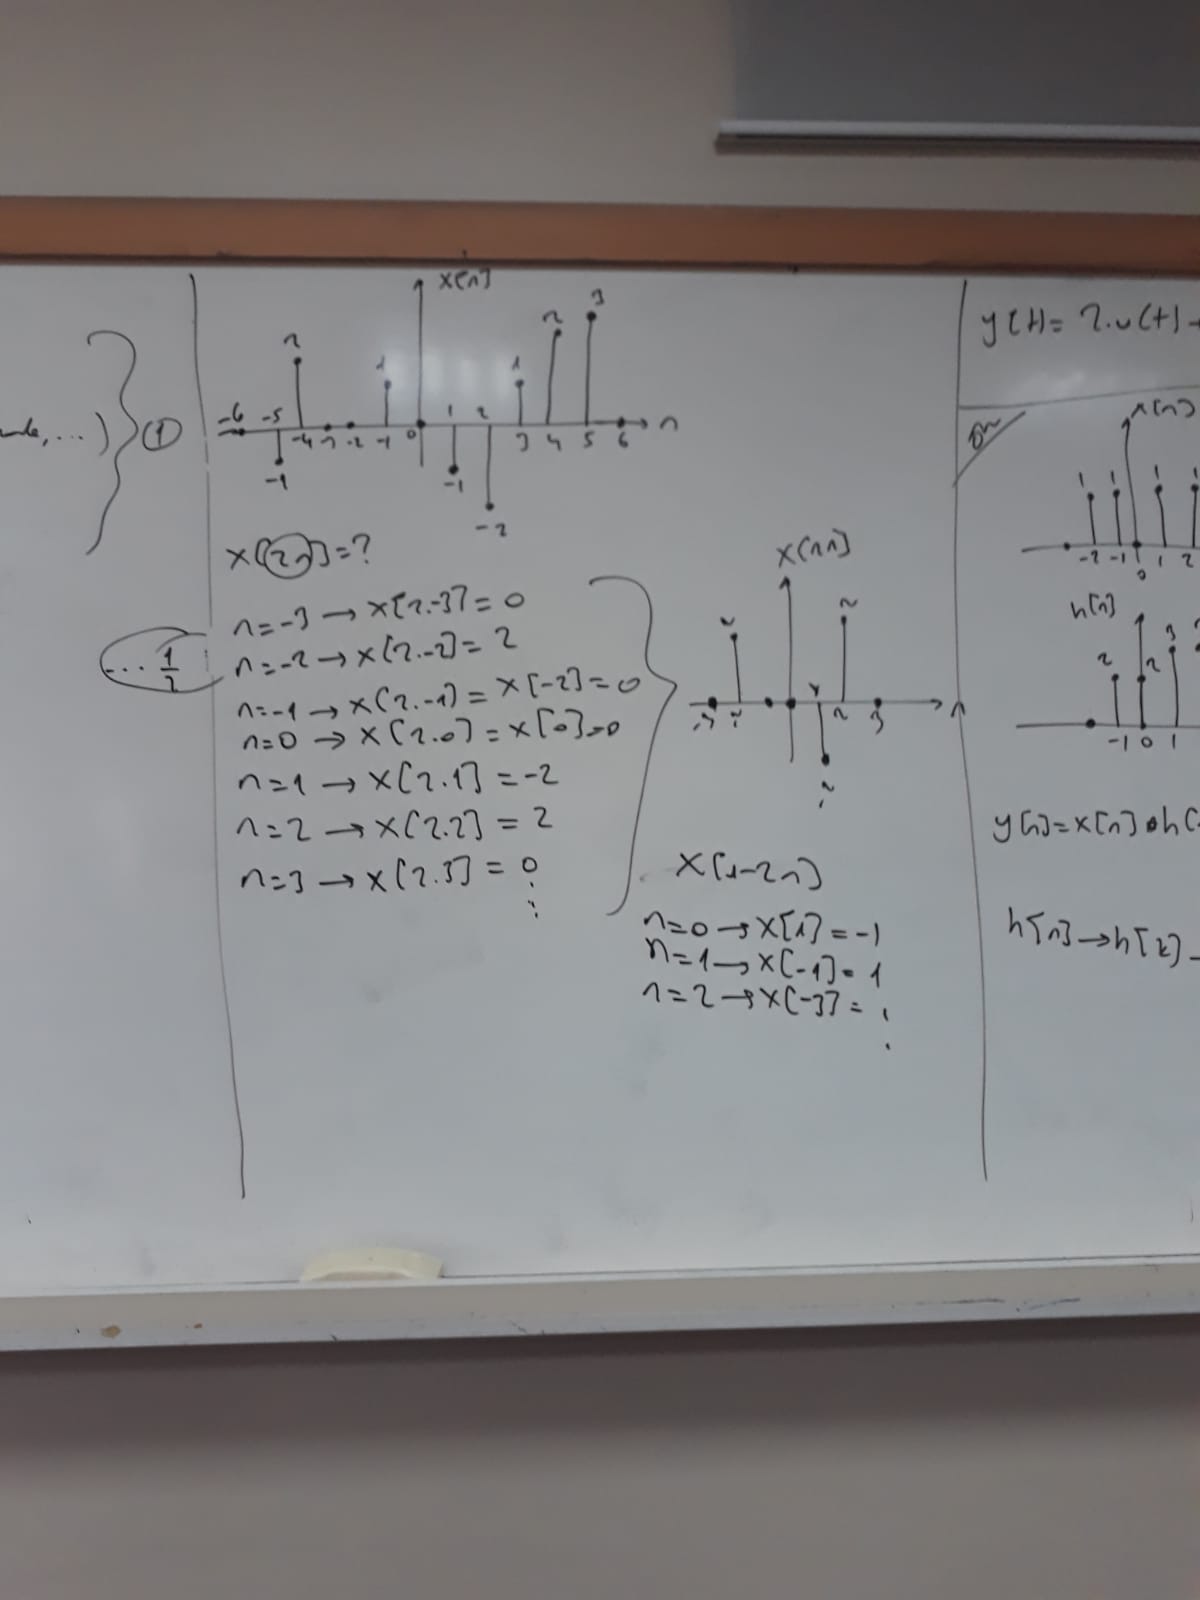 ..., ...) } ①
x[n]
2 1 1 2 3
-6 -5 -4 -3 -2 -1 0 1 2 3 4 5 6 n
-1 -1 -2
x[2n]=?
n=-3 → x[2.-3] = 0
... 1/2
n=-2 → x[2.-2] = 2
n=-1 → x[2.-1] = x[-2] = 0
n=0 → x[2.0] = x[0]=0
n=1 → x[2.1] = -2
n=2 → x[2.2] = 2
n=3 → x[2.3] = 0
⋮
x[2n]
2 2
-3 -2 1 2 3 n
-2
x[1-2n]
n=0 → x[1] = -1
n=1 → x[-1] = 1
n=2 → x[-3] =
⋮
y(t) = 2.u(t) -
x[n]
1 1 1 1
-2 -1 0 1 2
h[n]
2 2 3
-1 0 1
y[n] = x[n] * h[
h[n] → h[k] -